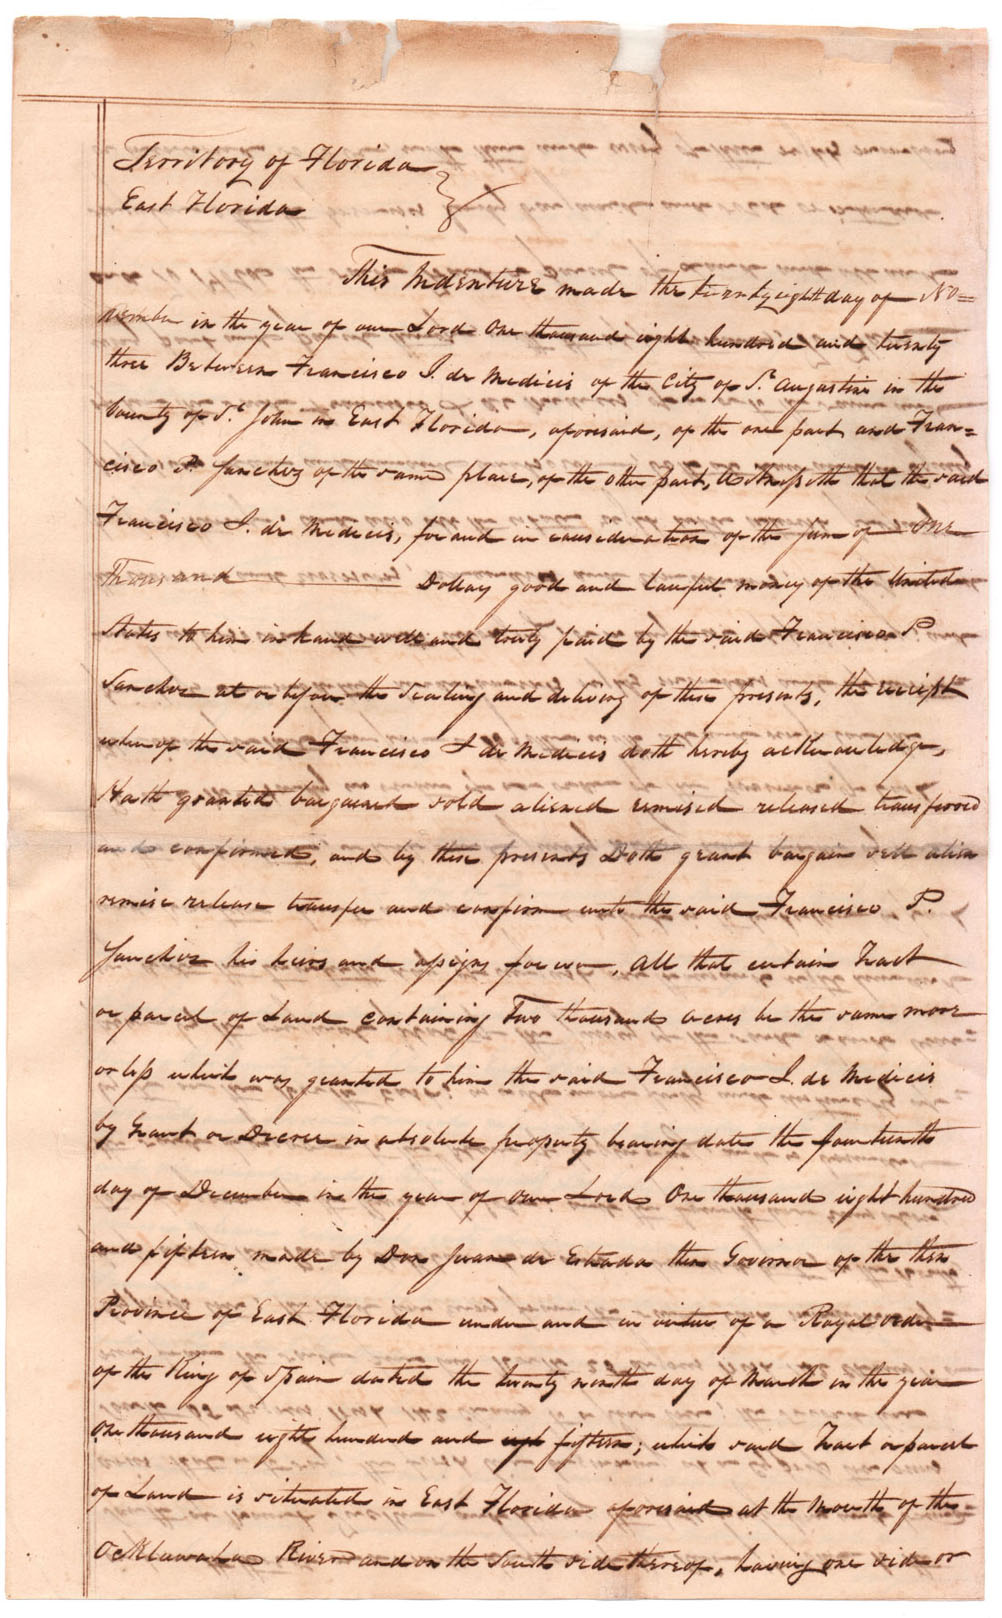 Territory of Florida
East Florida
This Indenture made the twentyeighth day of No=
vember in the year of our Lord One thousand eight hundred and twenty
three Between Francisco I. de Medicis of the City of St. Augustine in the
County of St. John in East Florida, aforesaid, of the one part and Fran=
cisco P. Sanchez of the same place, of the other part, Witnesseth that the said
Francisco I. de Medicis, for and in consideration of the sum of One
Thousand Dollars good and lawful money of the United
States to him in hand well and truly paid by the said Francisco P.
Sanchez at or before the sealing and delivery of these presents, the receipt
whereof the said Francisco I de Medicis doth hereby acknowledge,
Hath granted bargained sold aliened remised released transferred
and confirmed, and by these presents Doth grant bargain sell alien
remise release transfer and confirm unto the said Francisco P.
Sanchez his heirs and assigns forever, All that certain Tract
or parcel of Land containing Two thousand acres be the same more
or less which was granted to him the said Francisco I. de Medicis
by Grant or Decree in absolute property bearing date the fourteenth
day of December in the year of our Lord One thousand eight hundred
and fifteen made by Don Juan de Estrada then Governor of the then
Province of East Florida under and in virtue of a Royal order
of the King of Spain dated the twenty ninth day of March in the year
One thousand eight hundred and fifteen; which said Tract or parcel
of Land is situated in East Florida aforesaid at the Mouth of the
Ocklawaha River and on the South side thereof, having one side or